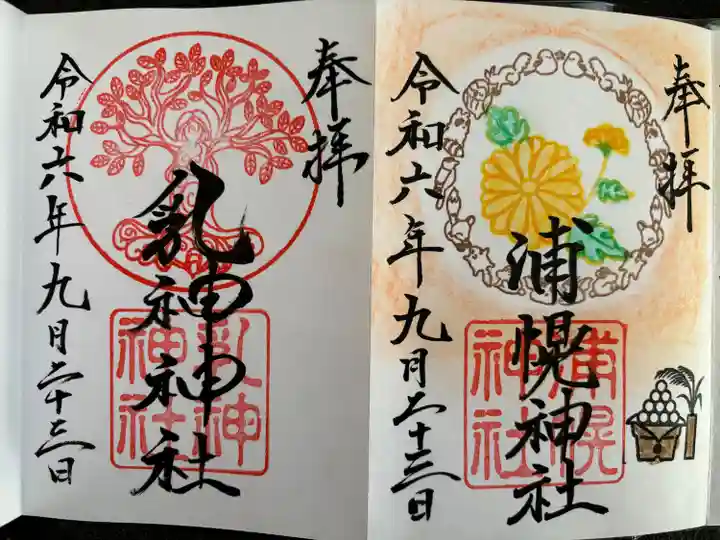 奉拝
浦幌神社
浦幌
神社
令和六年九月二十三日
奉拝
乳神神社
乳神
神社
令和六年九月二十三日